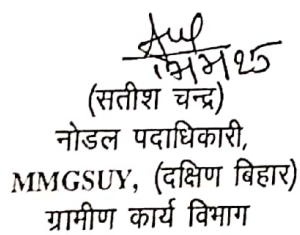 (सतीश चन्द्र)
नोडल पदाधिकारी,
MMGSUY, (दक्षिण बिहार)
ग्रामीण कार्य विभाग